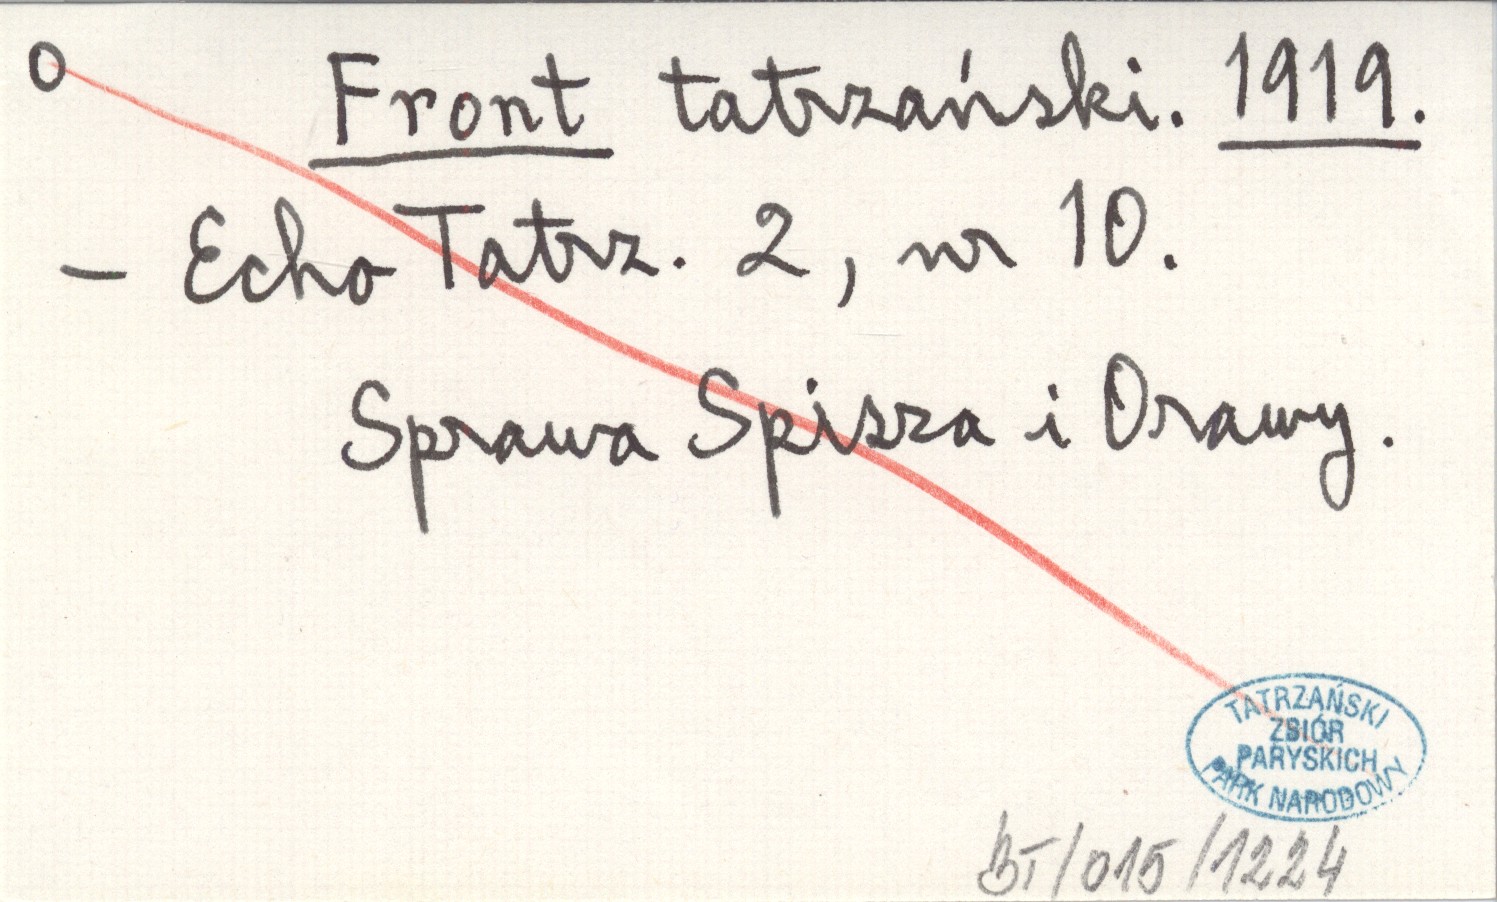 O
Front tatrzański. 1919.
– Echo Tatrz. 2, nr 10.
Sprawa Spisza i Orawy.
TATRZAŃSKI
ZBIÓR
PARYSKICH
PARK NARODOWY
BT/015/1224